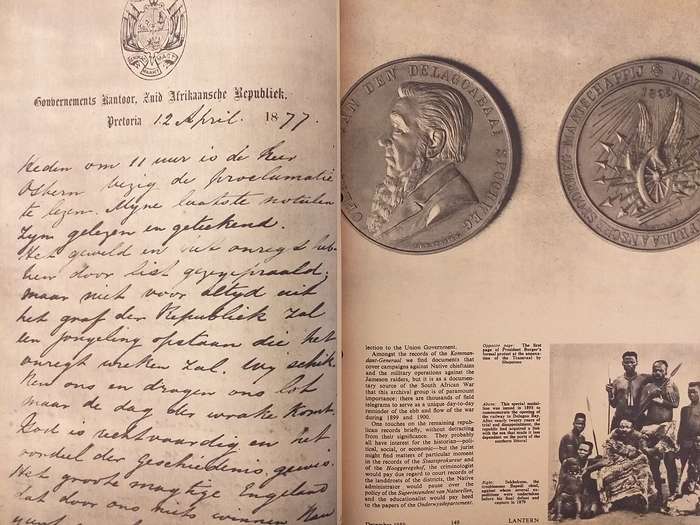 EENDRAGT MAAKT MAGT
Gouvernements Kantoor, Zuid Afrikaansche Republiek.
Pretoria 12 April. 1877.
Heden om 11 uur is de Heer
Osborn bezig de proclamatie
te lezen. Myne laatste notulen
zyn gelezen en geteekend.
Het geweld en het onregt heb-
ben door list gezegepraald;
maar niet voor altyd uit
het graf der Republiek zal
een jongeling opstaan die het
onregt wreken zal. Wy schik-
ken ons en dragen ons lot
maar de dag des wrake komt.
God is rechtvaardig en het
oordeel der Geschiedenis, gewis.
Het groote magtige Engeland
dat door ons niet winnen kan
VAN DEN DELAGOABAAI SPOORWEG
MAATSCHAPPIJ
1895
lection to the Union Government.
Amongst the records of the Komman-
dant-Generaal we find documents that
cover campaigns against Native chieftains
and the military operations against the
Jameson raiders, but it is as a documen-
tary source of the South African War
that this archival group is of paramount
importance: there are thousands of field
telegrams to serve as a unique day-to-day
reminder of the ebb and flow of the war
during 1899 and 1900.
One touches on the remaining repub-
lican records briefly, without detracting
from their significance. They probably
all have interest for the historian—poli-
tical, social, or economic—but the jurist
might find matters of particular moment
in the records of the Staatsprokureur and
of the Hooggeregshof, the criminologist
would pay due regard to court records of
the landdrosts of the districts, the Native
administrator would pause over the
policy of the Superintendent van Naturellen,
and the educationalist would pay heed
to the papers of the Onderwysdepartement.
December 1959 149 LANTERN
Opposite page: The first
page of President Burger's
formal protest at the annexa-
tion of the Transvaal by
Shepstone
Above: This special medal-
lion was issued in 1895 to
commemorate the opening of
the railway to Delagoa Bay.
After nearly twenty years of
trial and disappointment, the
republic had obtained a link
with the sea that made it less
dependent on the ports of the
southern littoral
Right: Sekhukune, the
troublesome Bapedi chief,
against whom several ex-
peditions were undertaken
before his final defeat and
capture in 1879